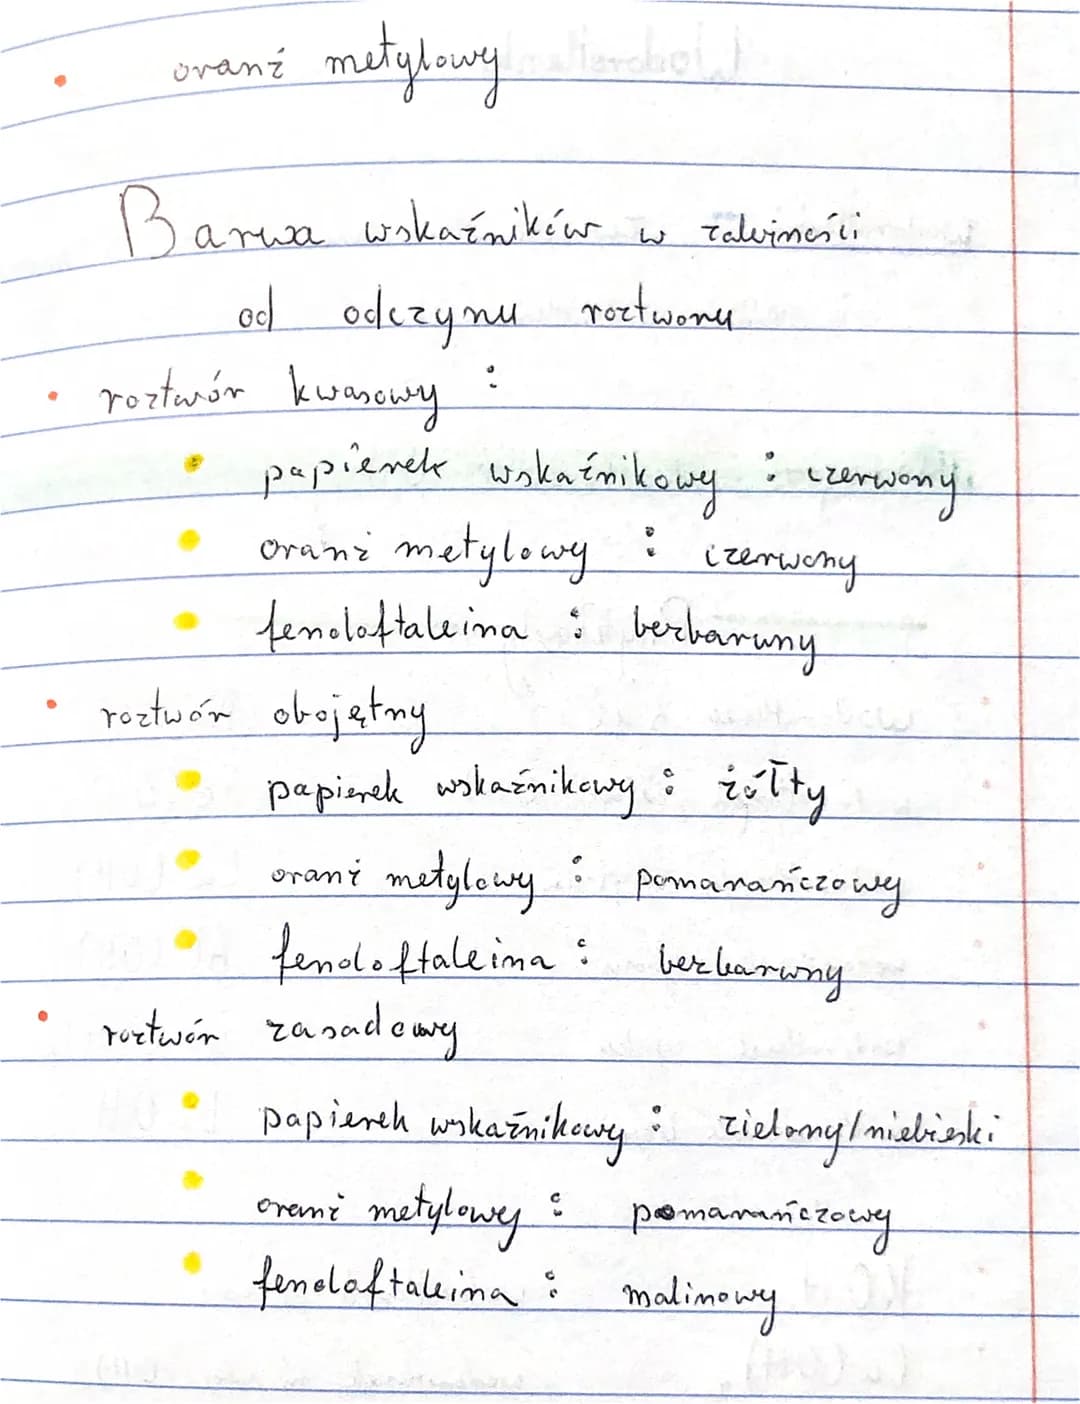 oranż metylowy
Barwa wskaźników w zależności
od odczynu roztworu
roztwór kwasowy :
papierek wskaźnikowy : czerwony
oranż metylowy : czerwony
fenoloftaleina : bezbarwny
roztwór obojętny
papierek wskaźnikowy : żółty
oranż metylowy : pomarańczowy
fenoloftaleina : bezbarwny
roztwór zasadowy
papierek wskaźnikowy : zielony/niebieski
oranż metylowy : pomarańczowy
fenoloftaleina : malinowy